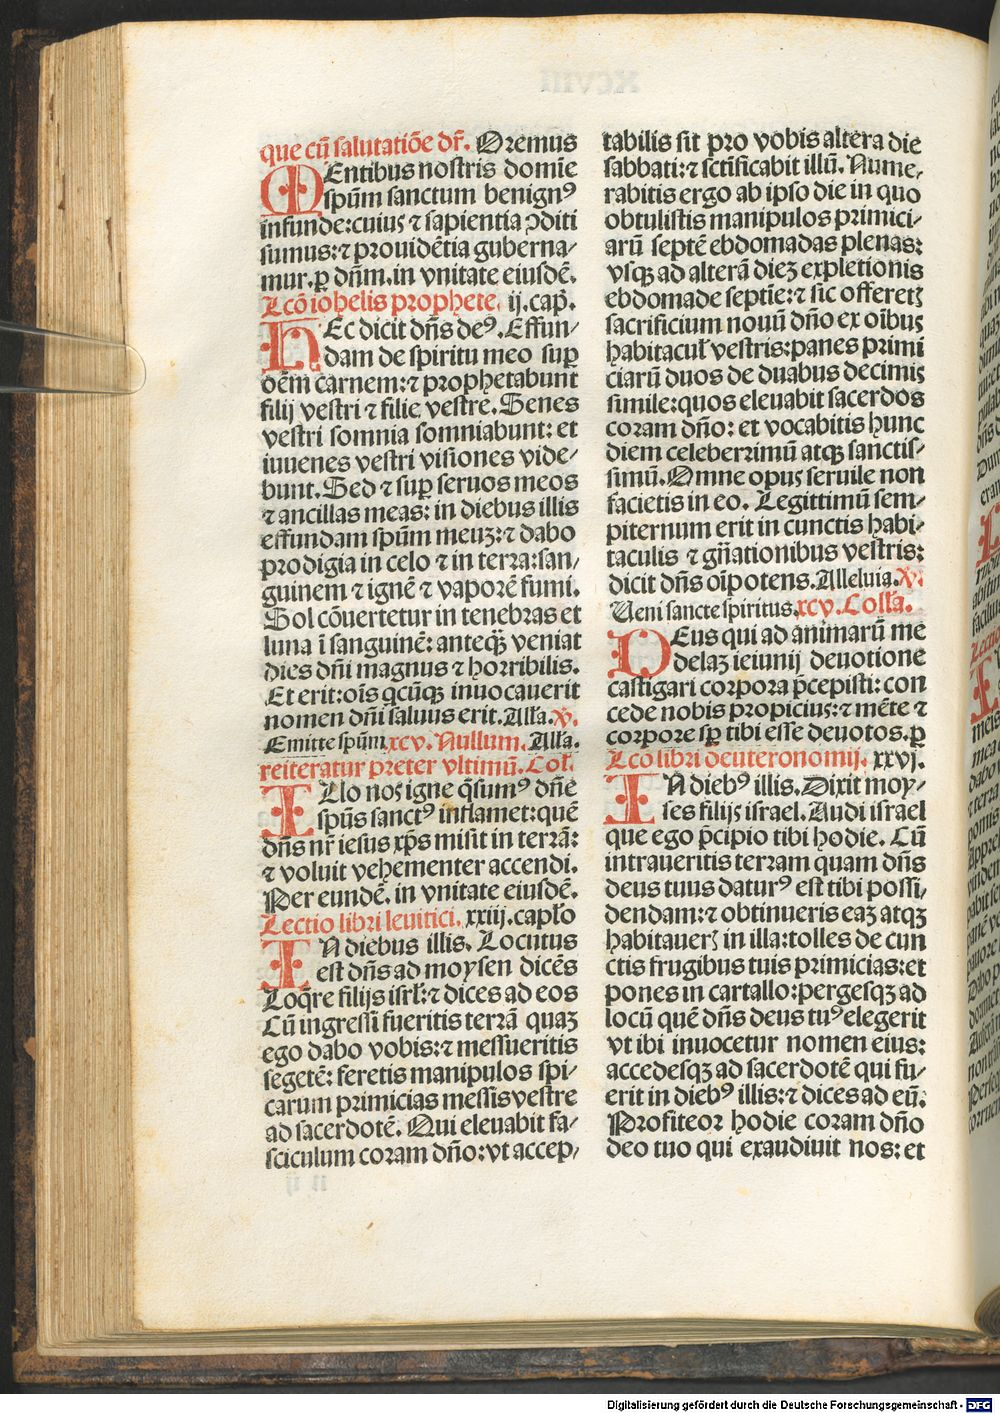 que cū salutatiōe dr̄. Oremus
MEntibus nostris domīe
spūm sanctum benignꝰ
infunde: cuius ⁊ sapientia ꝯditi
sumus: ⁊ prouidētia guberna⸗
mur. ꝑ dn̄m. in vnitate eiusdē.
Lcō iohelis prophete. ij. cap̄.
HEc dicit dn̄s deꝰ. Effun⸗
dam de spiritu meo suꝑ
oēm carnem: ⁊ prophetabunt
filij vestri ⁊ filie vestre. Senes
vestri somnia somniabunt: et
iuuenes vestri visiones vide⸗
bunt. Sed ⁊ suꝑ seruos meos
⁊ ancillas meas: in diebus illis
effundam spūm meuꝫ: ⁊ dabo
prodigia in celo ⁊ in terra: san⸗
guinem ⁊ ignē ⁊ vaporē fumi.
Sol cōuertetur in tenebras et
luna ī sanguinē: anteqꝫ̄ veniat
dies dn̄i magnus ⁊ horribilis.
Et erit: oīs qcūqꝫ inuocauerit
nomen dn̄i saluus erit. Alla. ℣.
Emitte spūm. xcv. Nullum. Alla.
reiteratur preter vltimū. Col.
ILlo nos igne q̄sumꝰ dn̄e
spūs sanctꝰ inflamet: quē
dn̄s nr̄ iesus xp̄s misit in terrā:
⁊ voluit vehementer accendi.
Per eundē. in vnitate eiusdē.
Lectio libri leuitici. xxiij. capl̄o
IN diebus illis. Locutus
est dn̄s ad moysen dicēs
Loq̄re filijs isrl̄: ⁊ dices ad eos
Cū ingressi fueritis terrā quaꝫ
ego dabo vobis: ⁊ messueritis
segetē: feretis manipulos spi⸗
carum primicias messis vestre
ad sacerdotē. Qui eleuabit fa⸗
sciculum coram dn̄o: vt accep⸗
tabilis sit pro vobis altera die
sabbati: ⁊ sctīficabit illū. Nume⸗
rabitis ergo ab ipso die in quo
obtulistis manipulos primici⸗
arū septē ebdomadas plenas:
vsqꝫ ad alterā dieꝫ expletionis
ebdomade septīe: ⁊ sic offeretꝭ
sacrificium nouū dn̄o ex oībus
habitacul̄ vestris: panes primi
ciarū duos de duabus decimis
simile: quos eleuabit sacerdos
coram dn̄o: et vocabitis hunc
diem celeberrimū atqꝫ sanctis⸗
simū. Omne opus seruile non
facietis in eo. Legittimū sem⸗
piternum erit in cunctis habi⸗
taculis ⁊ gn̄ationibus vestris:
dicit dn̄s oīpotens. Alleluia. ℣.
Ueni sancte spiritus. xcv. Coll̄a.
DEus qui ad animarū me
delaꝫ ieiunij deuotione
castigari corpora p̄cepisti: con
cede nobis propicius: ⁊ mēte ⁊
corpore sꝑ tibi esse deuotos. ꝑ
Lco libri deuteronomij. xxvj.
IN diebꝰ illis. Dixit moy⸗
ses filijs israel. Audi israel
que ego p̄cipio tibi hodie. Cū
intraueritis terram quam dn̄s
deus tuus daturꝰ est tibi possi⸗
dendam: ⁊ obtinueris eaꝫ atqꝫ
habitauerꝭ in illa: tolles de cun
ctis frugibus tuis primicias: et
pones in cartallo: pergesqꝫ ad
locū quē dn̄s deus tuꝰ elegerit
vt ibi inuocetur nomen eius:
accedesqꝫ ad sacerdotē qui fu⸗
erit in diebꝰ illis: ⁊ dices ad eū.
Profiteor hodie coram dn̄o
deo tuo qui exaudiuit nos: et
Digitalisierung gefördert durch die Deutsche Forschungsgemeinschaft - DFG